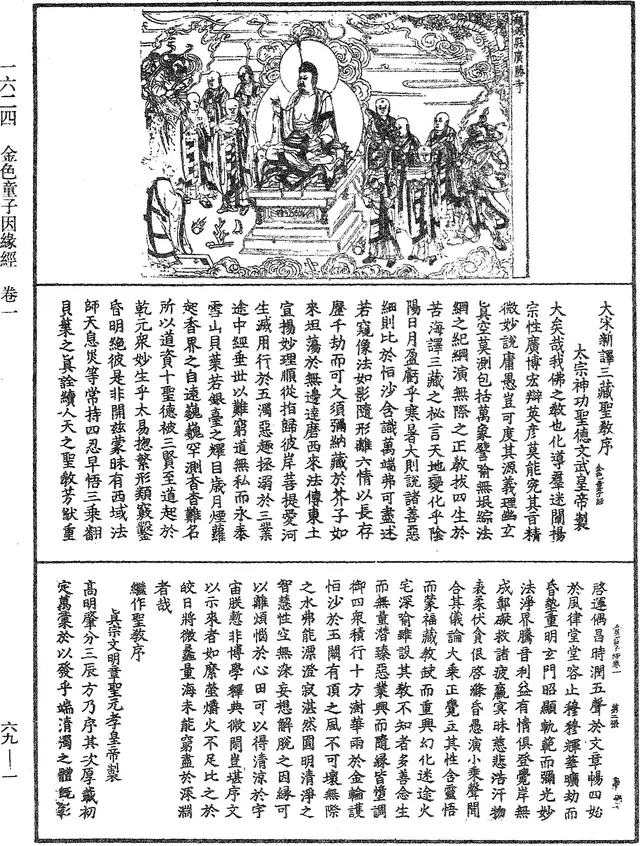 一六二四　金色童子因緣經　卷一
趙城縣廣勝寺
大宋新譯三藏聖教序
太宗神功聖德文武皇帝製
大矣哉我佛之教也化導羣迷闡揚
宗性廣博宏辯英彥莫能究其旨精
微妙說庸愚豈可度其源義理幽玄
真空莫測包括萬象譬喻無垠綜法
網之紀綱演無際之正教拔四生於
苦海譯三藏之祕言天地變化乎陰
陽日月盈虧乎寒暑大則說諸善惡
細則比於恒沙含識萬端弗可盡述
若窺像法如影隨形離六情以長存
歷千劫而可久須彌納藏於芥子如
來坦蕩於無邊達磨西來法傳東土
宣揚妙理順從指歸彼岸菩提愛河
生滅用行於五濁惡趣拯溺於三業
途中經垂世以難窮道無私而永泰
雪山貝葉若銀臺之耀目歲月煙蘿
起香界之自遠巍巍罕測杳杳難名
所以道資十聖德被三賢至道起於
乾元衆妙生乎太易捴繁形類竅鑿
昏明絕彼是非開兹蒙昧有西域法
師天息災等常持四忍早悟三乘翻
貝葉之真詮續人天之聖教芳猷重
啓運偶昌時潤五聲於文章暢四始
於風律堂堂容止穆穆輝華曠劫而
昏墊重明玄門昭顯軌範而彌光妙
法淨界騰音利益有情俱登覺岸無
成鄣礙救諸疲羸㝠昧慈悲浩汗物
表柔伏貪佷啓滌昏愚演小乘聲聞
合其儀論大乘正覺立其性含靈悟
而蒙福藏教缺而重興幻化迷途火
宅深喻雖設其教不知者多善念生
而無量潛臻惡業興而隨緣皆墮調
御四衆積行十方澍華雨於金輪護
恒沙於玉闕有頂之風不可壞無際
之水弗能漂澄寂湛然圓明清淨之
智慧性空無染妄想解脫之因緣可
以離煩惱於心田可以得清涼於宇
宙朕慙非博學釋典微閑豈堪序文
以示來者如縻螢爝火不足比之於
皎日將微蠡量海未能窮盡於深淵
者哉
繼作聖教序
真宗文明章聖元孝皇帝製
高明肇分三辰方乃序其次厚載初
定萬彙於以發乎端清濁之體旣彰
六九——一